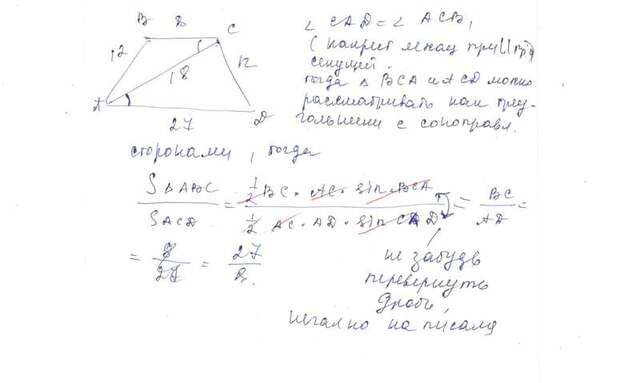 B 8 C
12 18 12
A 27 D
∠ CAD = ∠ ACB,
( накрест лежащ при || пр.
секущей.
тогда Δ BCA и ACD можно
рассматривать как
треугольники с
сторонами, тогда
S ΔABC / S ACD = 1/2 BC · AC · sin BCA / 1/2 AC · AD · sin CAD = BC / AD =
= 8 / 27 = 27 / 8.
не забудь
перевернуть
дробь,
написала